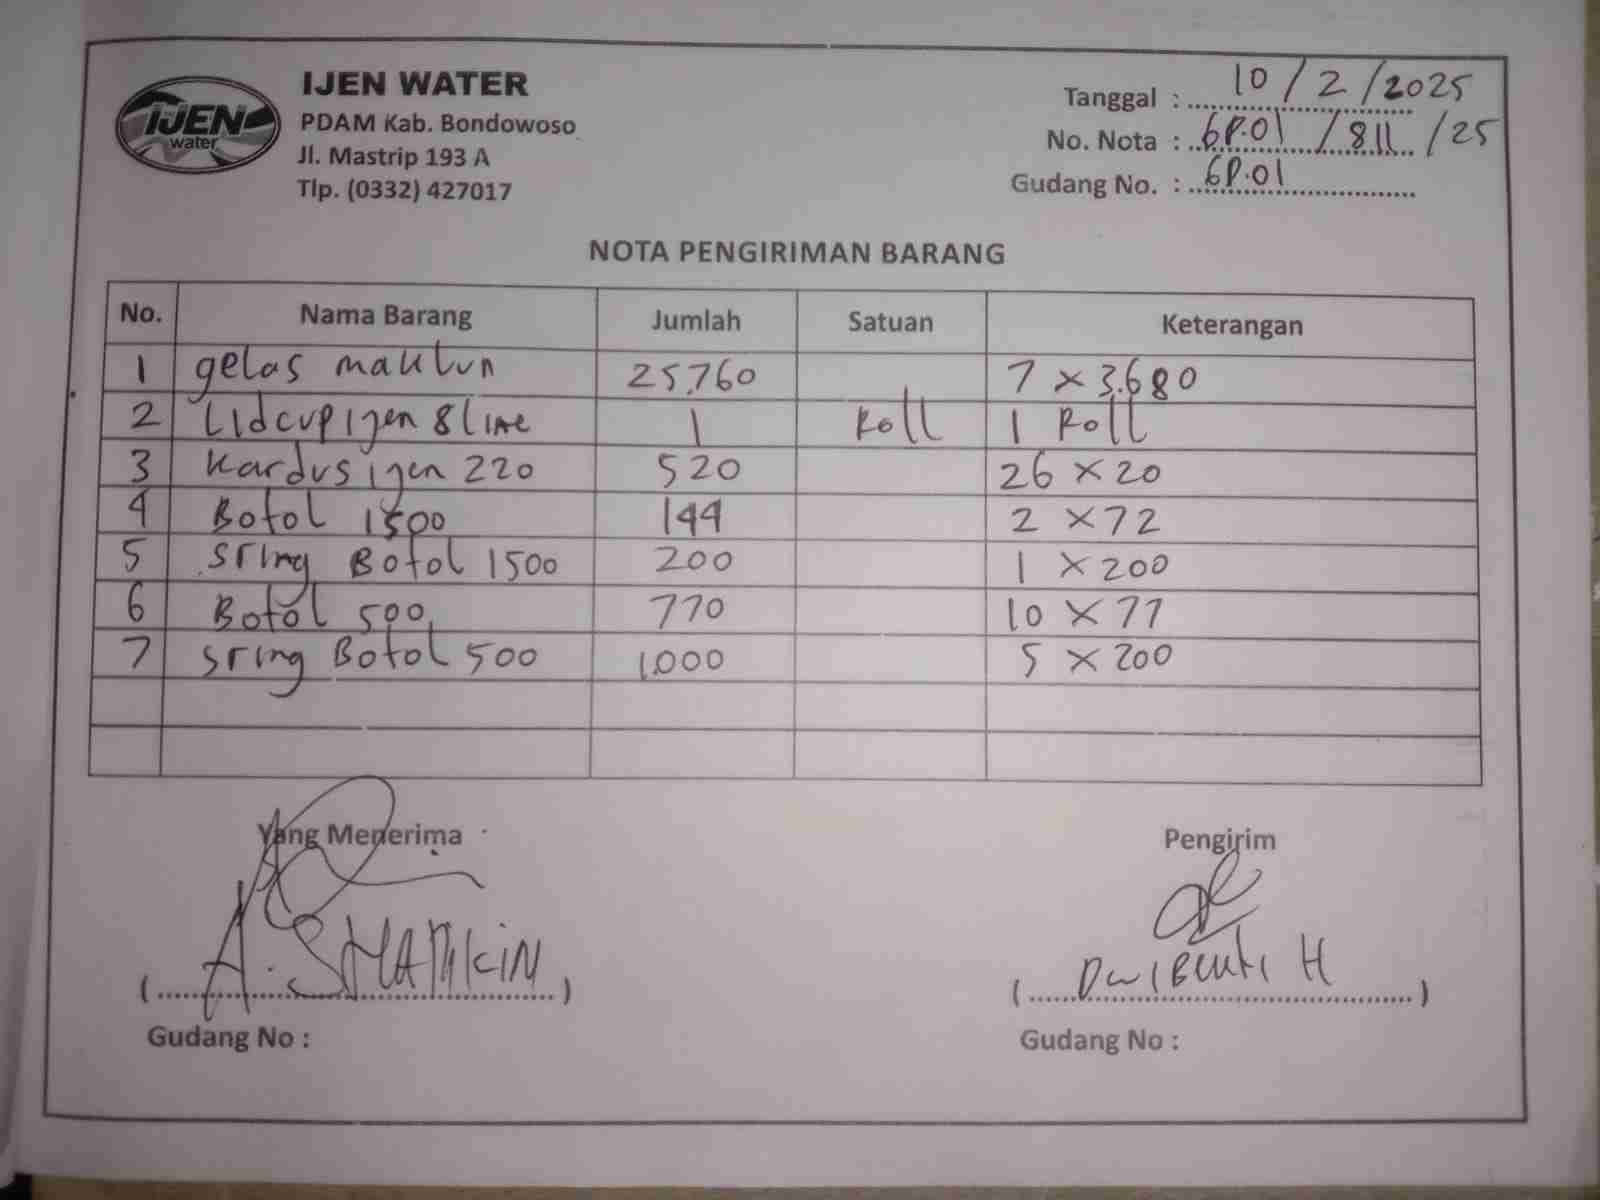 IJEN
water
IJEN WATER
PDAM Kab. Bondowoso
Jl. Mastrip 193 A
Tlp. (0332) 427017
Tanggal : 10 / 2 / 2025
No. Nota : 6P.01 / 811 / 25
Gudang No. : 6P.01
NOTA PENGIRIMAN BARANG
No. Nama Barang Jumlah Satuan Keterangan
1 gelas maklun 25.760 7 x 3.680
2 Lidcup ijen 8 line 1 Roll 1 Roll
3 Kardus ijen 220 520 26 x 20
4 Botol 1500 144 2 x 72
5 sring Botol 1500 200 1 x 200
6 Botol 500 770 10 x 77
7 sring Botol 500 1.000 5 x 200
Yang Menerima Pengirim
(A. SYAMKIN) ( H)
Gudang No : Gudang No :